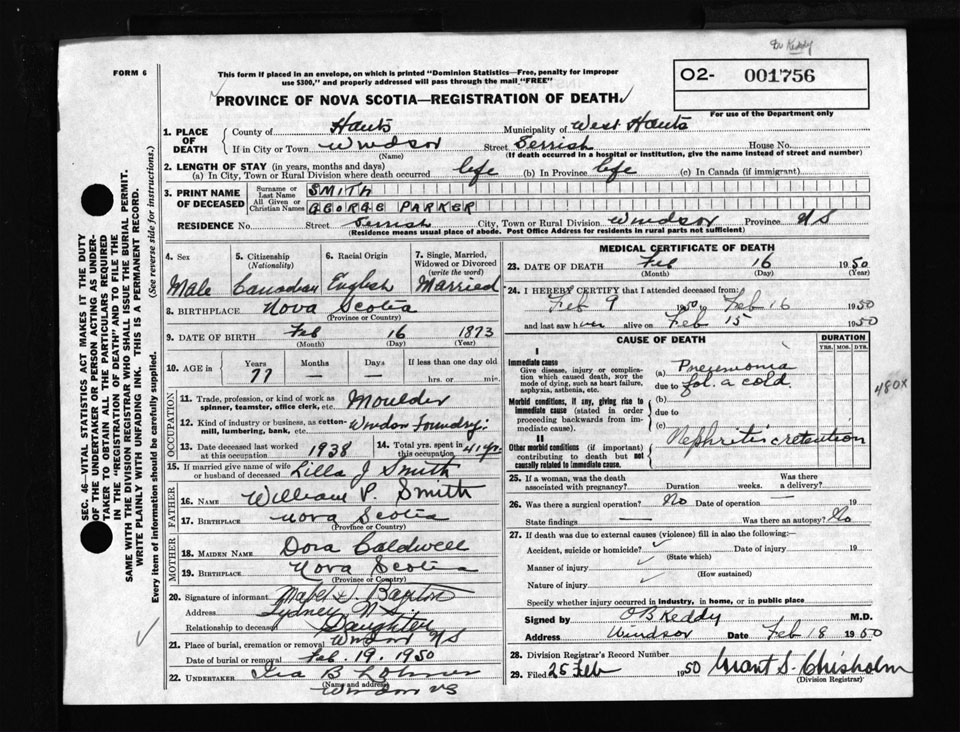 Dr Keddy
FORM 6
This form if placed in an envelope, on which is printed "Dominion Statistics—Free, penalty for improper
use $300," and properly addressed will pass through the mail "FREE"
O2- 001756
For use of the Department only
PROVINCE OF NOVA SCOTIA—REGISTRATION OF DEATH
1. PLACE OF DEATH
County of Hants Municipality of West Hants
If in City or Town Windsor Street Gerrish House No.
(Name) (If death occurred in a hospital or institution, give the name instead of street and number)
2. LENGTH OF STAY (in years, months and days)
(a) In City, Town or Rural Division where death occurred life (b) In Province life (c) In Canada (if immigrant)
3. PRINT NAME OF DECEASED
Surname or Last Name SMITH
All Given or Christian Names GEORGE PARKER
RESIDENCE No. Street Gerrish City, Town or Rural Division Windsor Province NS
(Residence means usual place of abode. Post Office Address for residents in rural parts not sufficient)
4. Sex 5. Citizenship (Nationality) 6. Racial Origin 7. Single, Married, Widowed or Divorced (write the word)
Male Canadian English Married
8. BIRTHPLACE Nova Scotia
(Province or Country)
9. DATE OF BIRTH Feb 16 1873
(Month) (Day) (Year)
10. AGE in Years Months Days If less than one day old
77 — — hrs. or min.
OCCUPATION
11. Trade, profession, or kind of work as
spinner, teamster, office clerk, etc. Moulder
12. Kind of industry or business, as cotton-
mill, lumbering, bank, etc. Windsor Foundry
13. Date deceased last worked
at this occupation 1938
14. Total yrs. spent in
this occupation 41 yrs.
15. If married give name of wife
or husband of deceased Lilla J Smith
FATHER
16. Name William P. Smith
17. Birthplace Nova Scotia
(Province or Country)
MOTHER
18. MAIDEN NAME Dora Caldwell
19. BIRTHPLACE Nova Scotia
(Province or Country)
20. Signature of informant Mabel
Address Sydney N S.
Relationship to deceased Daughter
21. Place of burial, cremation or removal Windsor N S
Date of burial or removal Feb. 19. 1950
22. UNDERTAKER Ira B
(Name and address)
Windsor NS
MEDICAL CERTIFICATE OF DEATH
23. DATE OF DEATH Feb 16 1950
(Month) (Day) (Year)
24. I HEREBY CERTIFY that I attended deceased from:
Feb 9 1950 to Feb 16 1950
and last saw h alive on Feb 15 1950
CAUSE OF DEATH DURATION
YRS. MOS. DYS.
I
Immediate cause
Give disease, injury or complica-
tion which caused death, not the
mode of dying, such as heart failure,
asphyxia, asthenia, etc.
(a) Pneumonia
due to fol. a cold.
Morbid conditions, if any, giving rise to
immediate cause (stated in order
proceeding backwards from im-
mediate cause).
(b)
due to
(c)
II
Other morbid conditions (if important)
contributing to death but not
causally related to immediate cause.
Nephritis retention
480X
25. If a woman, was the death
associated with pregnancy? Duration weeks. Was there
a delivery?
26. Was there a surgical operation? No Date of operation — 19
State findings — Was there an autopsy? No
27. If death was due to external causes (violence) fill in also the following:—
Accident, suicide or homicide? Date of injury 19
(State which)
Manner of injury
(How sustained)
Nature of injury
Specify whether injury occurred in industry, in home, or in public place
Signed by O B Keddy M.D.
Address Windsor Date Feb 18 1950
28. Division Registrar's Record Number
29. Filed 25 Feb 1950 Grant S. Chisholm
(Division Registrar)
SEC. 46—VITAL STATISTICS ACT MAKES IT THE DUTY
OF THE UNDERTAKER OR PERSON ACTING AS UNDER-
TAKER TO OBTAIN ALL THE PARTICULARS REQUIRED
IN THE "REGISTRATION OF DEATH" AND TO FILE THE
SAME WITH THE DIVISION REGISTRAR WHO SHALL ISSUE THE BURIAL PERMIT.
WRITE PLAINLY WITH UNFADING INK. THIS IS A PERMANENT RECORD.
Every item of information should be carefully supplied. (See reverse side for instructions.)